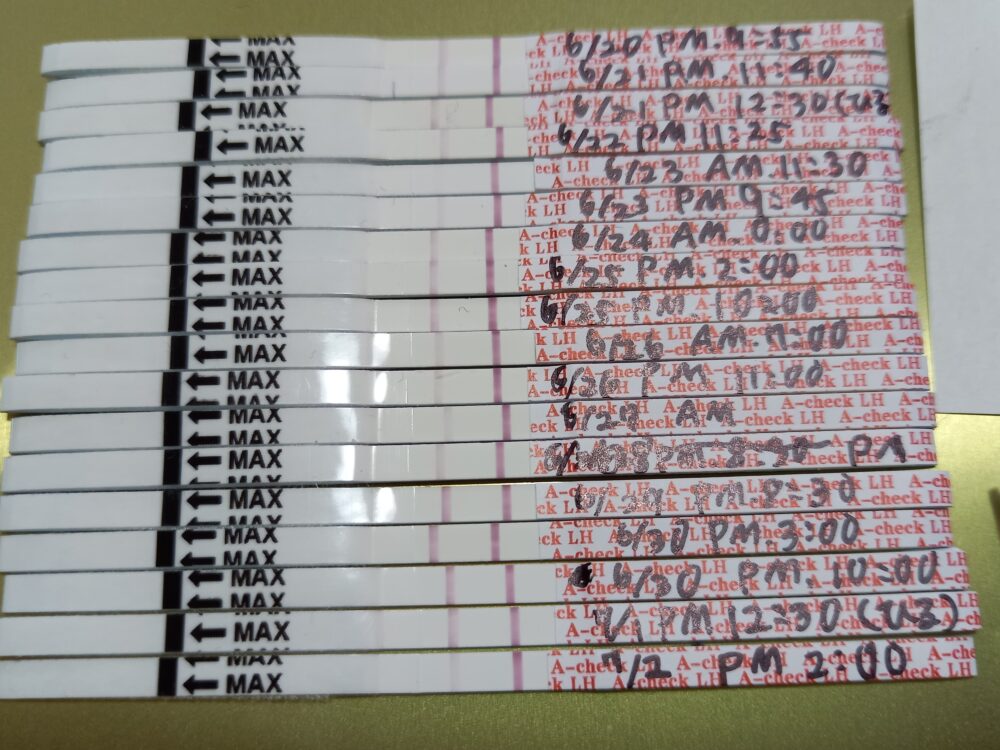 MAX A-check LH 6/20 PM.9:55
MAX A-check LH 6/21 AM 11:40
MAX A-check LH 6/21 PM 12:30
MAX A-check LH 6/22 PM 11:25
MAX A-check LH 6/23 AM 11:30
MAX A-check LH 6/23 PM 9:45
MAX A-check LH 6/24 AM. 0:00
MAX A-check LH 6/25 PM. 2:00
MAX A-check LH 6/25 PM. 10:00
MAX A-check LH 6/26 AM.
MAX A-check LH 6/26 PM 11:00
MAX A-check LH AM
MAX A-check LH PM 8:30 PM
MAX A-check LH PM
MAX A-check LH 6/30 PM.3:00
MAX A-check LH 6/30 PM. 10:00
MAX A-check LH 7/1 PM 12:30
MAX A-check LH 7/2 PM 2:00